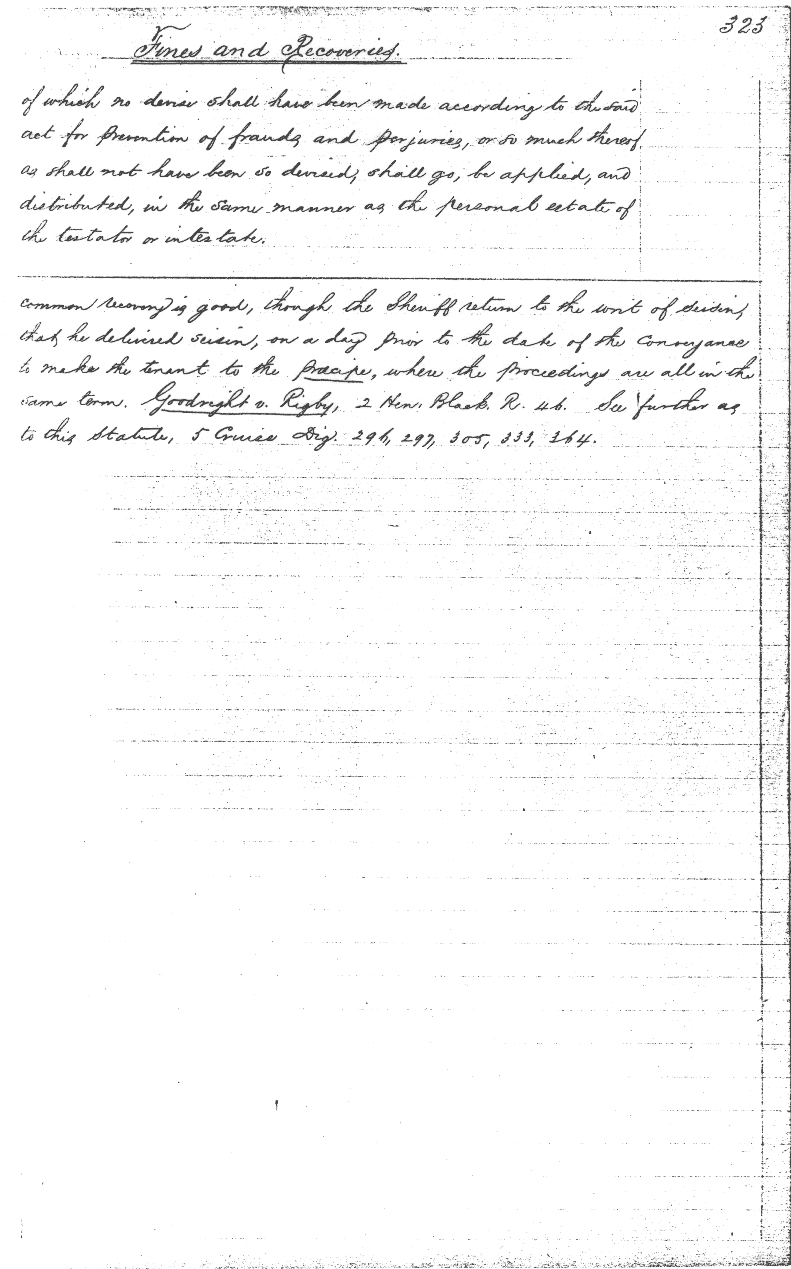 323
Fines and Recoveries.
of which no devise shall have been made according to the said
act for prevention of frauds and perjuries, or so much thereof
as shall not have been so devised, shall go, be applied, and
distributed, in the same manner as the personal estate of
the testator or intestate.
common recovery is good, though the Sheriff return to the writ of seisin,
that he delivered seisin, on a day prior to the date of the Conveyance
to make the tenant to the precipe, where the proceedings are all in the
same term. Goodright v. Rigby, 2 Hen. Black. R. 46. See further as
to this Statute, 5 Cruise Dig. 296, 297, 305, 333, 364.